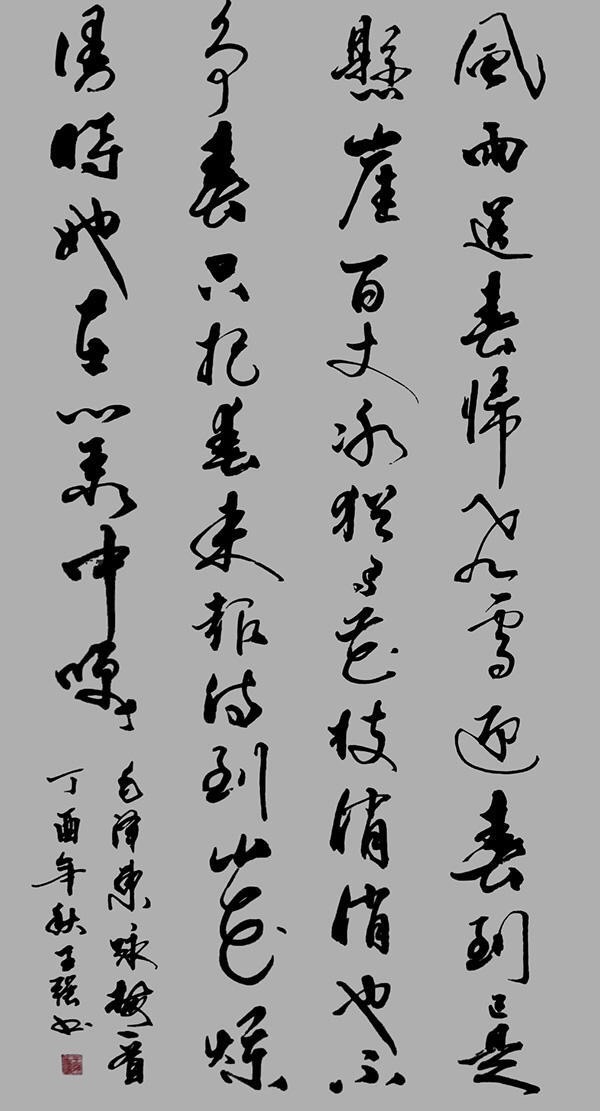 風雨送春歸飛雪迎春到已是
懸崖百丈冰猶有花枝俏俏也不
争春只把春来報待到山花爛
漫時她在叢中咲
毛泽東咏梅一首
丁酉年秋王强书